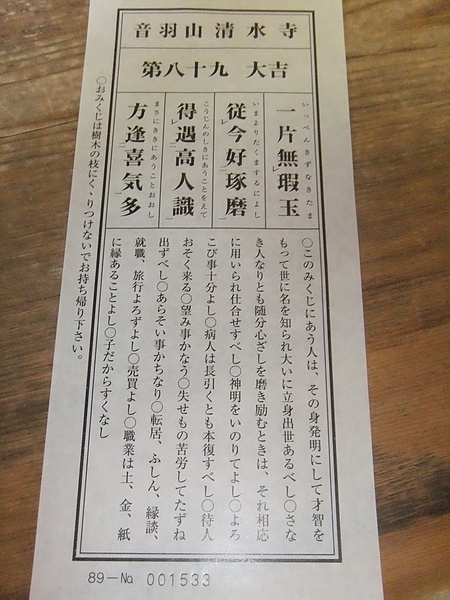 音羽山清水寺
第八十九 大吉
一片無瑕玉
いっぺんきずなきたま
従今好琢磨
いまよりたくまするによし
得遇高人識
こうじんのしきにあうことをえて
方逢喜気多
まさにききにあうことおおし
〇このみくじにあう人は、その身発明にして才智を
もって世に名を知られ大いに立身出世あるべし〇さな
き人なりとも随分心ざしを磨き励むときは、それ相応
に用いられ仕合せすべし〇神明をいのりてよし〇よろ
こび事十分よし〇病人は長引くとも本復すべし〇待人
おそく来る〇望み事かなう〇失せもの苦労してたずね
出ずべし〇あらそい事かちなり〇転居、ふしん、縁談、
就職、旅行よろずよし〇売買よし〇職業は土、金、紙
に縁あることよし〇子だからすくなし
〇おみくじは樹木の枝にくゝりつけないでお持ち帰り下さい。
89－№ 001533